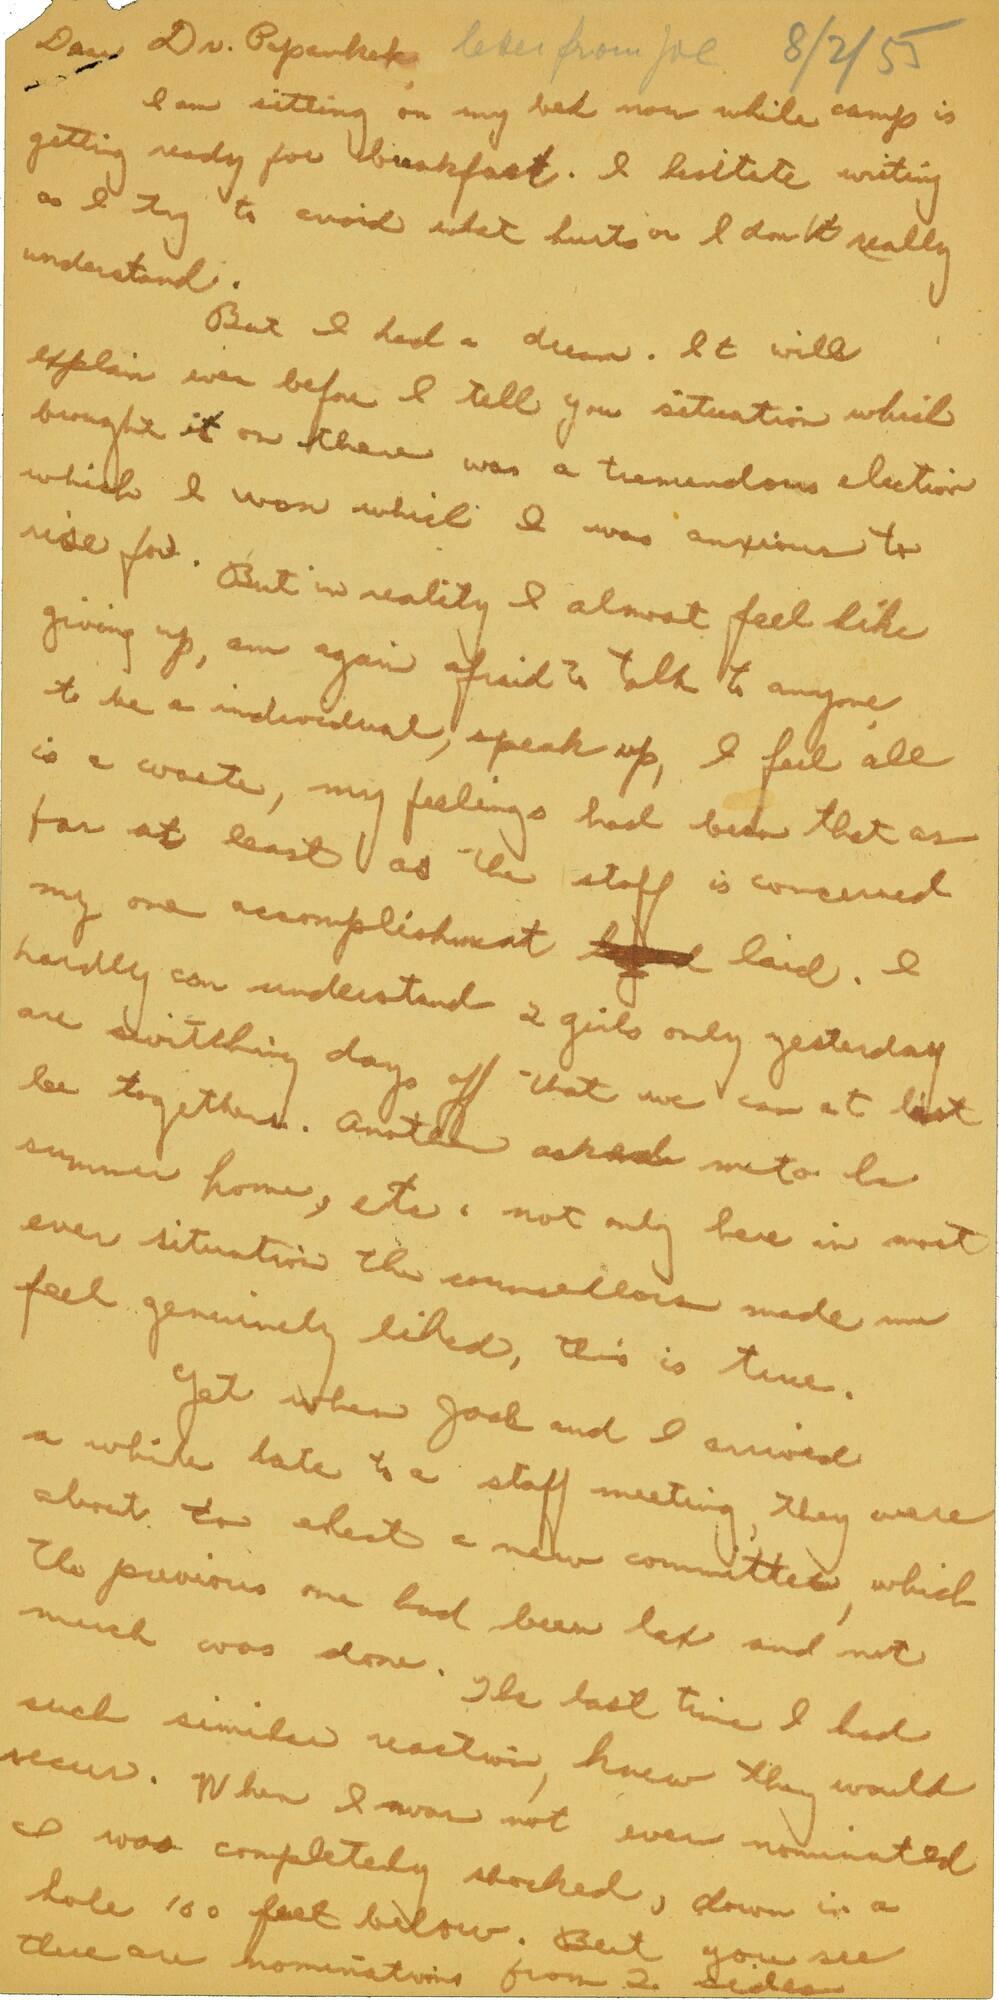 Dear Dr. Papanek, letter from Joe 8/2/55
I am sitting on my bed now while camp is
getting ready for breakfast. I hesitate writing
as I try to avoid what hurts or I don't really
understand.
But I had a dream. It will
explain even before I tell you situation which
brought it on there was a tremendous election
which I won which I was anxious to
rise for. But in reality I almost feel like
giving up, am again afraid to talk to anyone,
to be a individual, speak up, I feel all
is a waste, my feelings had been that as
far at least as the staff is concerned
my one accomplishment laid. I
hardly can understand 2 girls only yesterday
are switching days off that we can at last
be together. Another asked me to be
summer home, etc. not only here in most
ever situation the counsellors made me
feel genuinely liked, this is true.
Yet when Jack and I arrived
a while late to a staff meeting, they were
about to elect a new committee, which
the previous one had been lax and not
much was done. The last time I had
such similar reaction, knew they would
recur. When I was not even nominated
I was completely shocked, down in a
hole 100 feet below. But you see
there are nominations from 2 sides